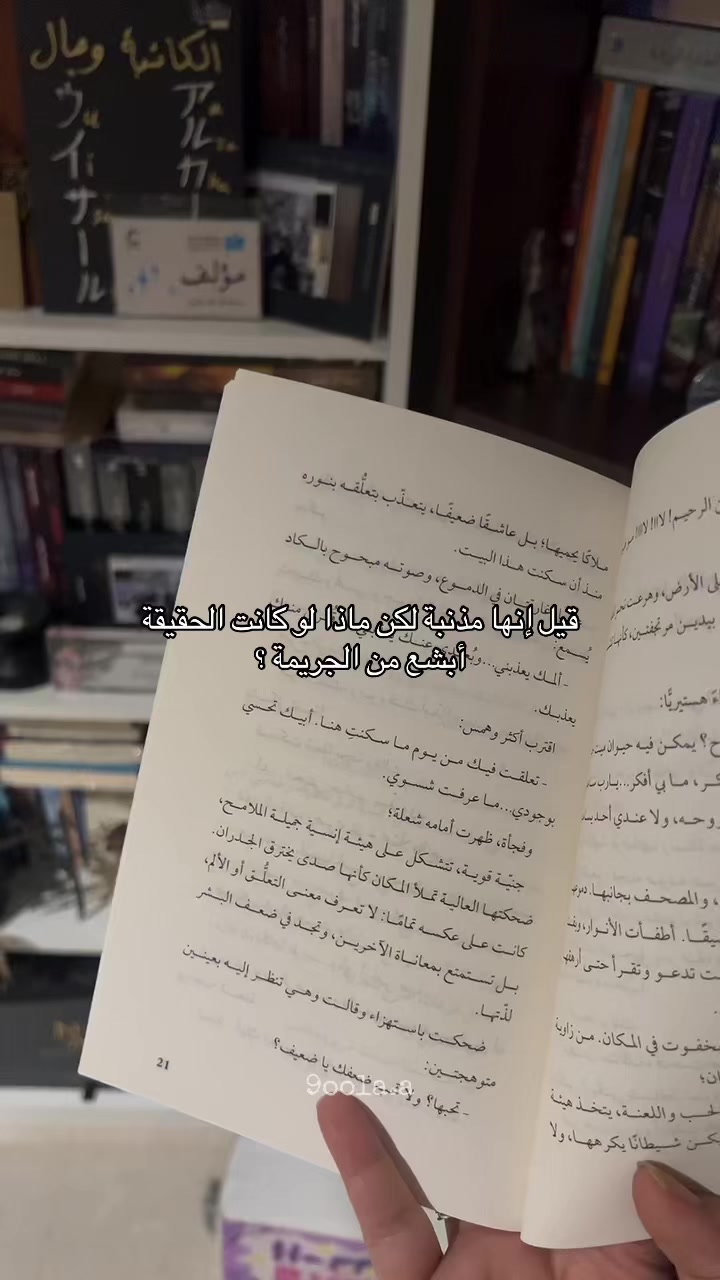 الكاتبة وصال
アルカー
ウィサール
مؤلف
قيل إنها مذنبة لكن ماذا لو كانت الحقيقة
أبشع من الجريمة ؟
ملاكًا يحميها؛ بل عاشقًا ضعيفًا، يتعذّب بتعلُّقه بنوره
منذ أن سكنت هذا البيت.
في الدموع، وصوته مبحوح بالكاد
يُسمع:
- ألمك يعذبني...
يعذبك.
اقترب أكثر وهمس:
- تعلقت فيك من يوم ما سكنتِ هنا. أبيك تحسي
بوجودي...ما عرفت شسوي.
وفجأة، ظهرت أمامه شعلة؛
جنيّة قوية، تتشكل على هيئة إنسية جميلة الملامح،
ضحكتها العالية تملأ المكان كأنها صدى يخترق الجدران.
كانت على عكسه تمامًا: لا تعرف معنى التعلُّق أو الألم،
بل تستمتع بمعاناة الآخرين، وتجد في ضعف البشر
لذّتها.
ضحكت باستهزاء وقالت وهي تنظر إليه بعينين
متوهجتين:
- تحبها؟ ولا تحب ضعفك يا ضعيف؟
21
9oola.a
الرحيم! لا!!! لا!!!
على الأرض، وهرعت
بيدين مرتجفتين، كأنها
هستيريًّا:
؟ يمكن فيه حيوان
ما بي أفكر...يا رب
روحه، ولا عندي أحد
، والمصحف بجانبها.
. أطفأت الأنوار،
تدعو وتقرأ حتى
بخفوت في المكان. من زاوية
الحب واللعنة، يتخذ هيئة
يكن شيطانًا يكرهها، ولا